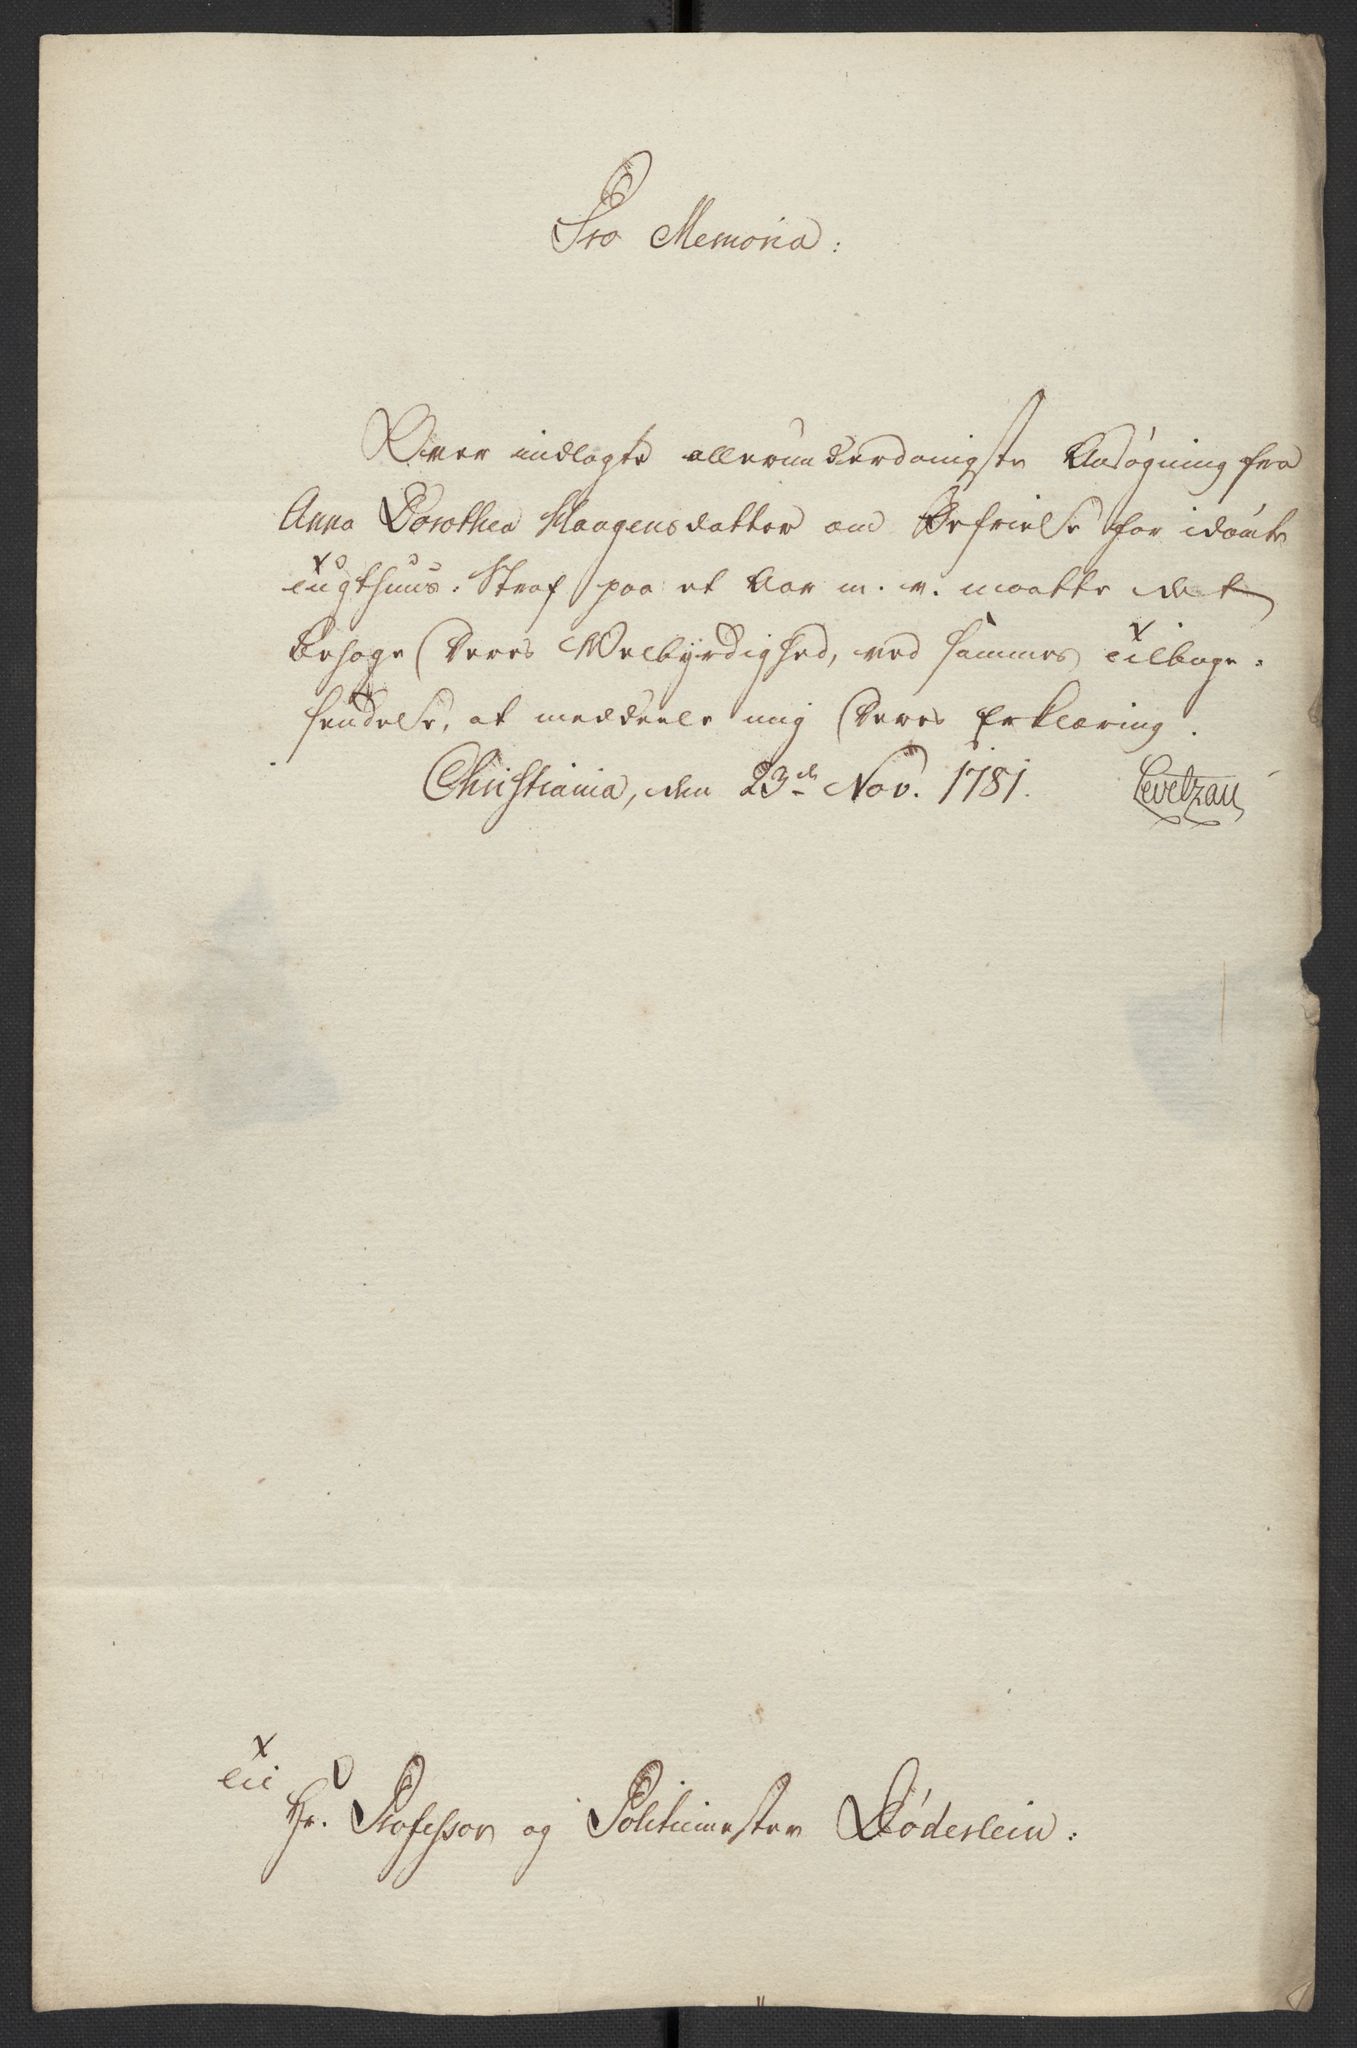 Pro Memoria:
Over indlagte allerunderdanigste Ansøgning fra
Anna Dorothea Haagensdatter om Befrielse for idømte
Tugthuus-Straf paa et Aar m. v. maatte det
behage Deres Welbyrdighed, ved sammes Tilbage-
sendelse, at meddeele mig Deres Erklæring.
Christiania, den 23de Nov. 1781. Levetzau
Til
Hr. Professor og Politiemester Døderlein: